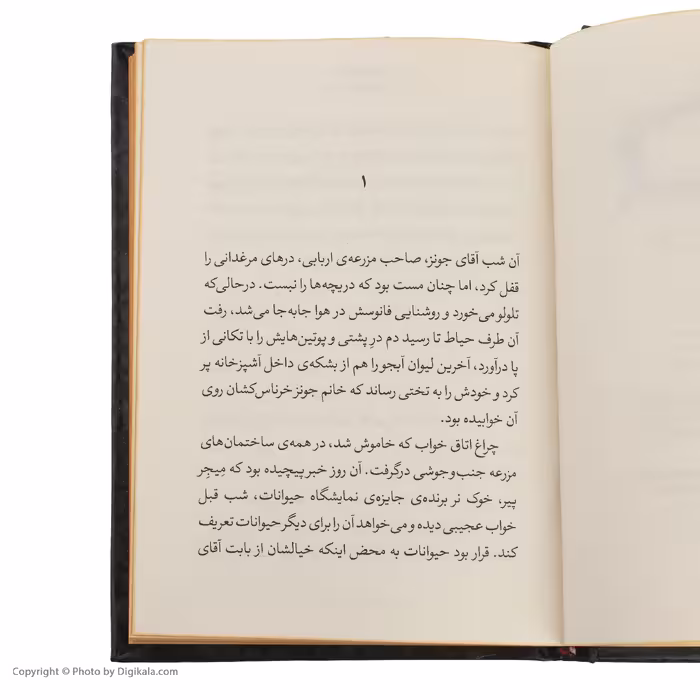 ۱
آن شب آقای جونز، صاحب مزرعه‌ی اربابی، درهای مرغدانی را
قفل کرد، اما چنان مست بود که دریچه‌ها را نبست. درحالی‌که
تلوتلو می‌خورد و روشنایی فانوسش در هوا جابه‌جا می‌شد، رفت
آن طرف حیاط تا رسید دم درِ پشتی و پوتین‌هایش را با تکانی از
پا درآورد، آخرین لیوان آبجو را هم از بشکه‌ی داخل آشپزخانه پر
کرد و خودش را به تختی رساند که خانم جونز خرناس‌کشان روی
آن خوابیده بود.
چراغ اتاق خواب که خاموش شد، در همه‌ی ساختمان‌های
مزرعه جنب‌وجوشی درگرفت. آن روز خبر پیچیده بود که مِیجِر
پیر، خوک نر برنده‌ی جایزه‌ی نمایشگاه حیوانات، شب قبل
خواب عجیبی دیده و می‌خواهد آن را برای دیگر حیوانات تعریف
کند. قرار بود حیوانات به محض اینکه خیالشان از بابت آقای
Copyright © Photo by Digikala.com